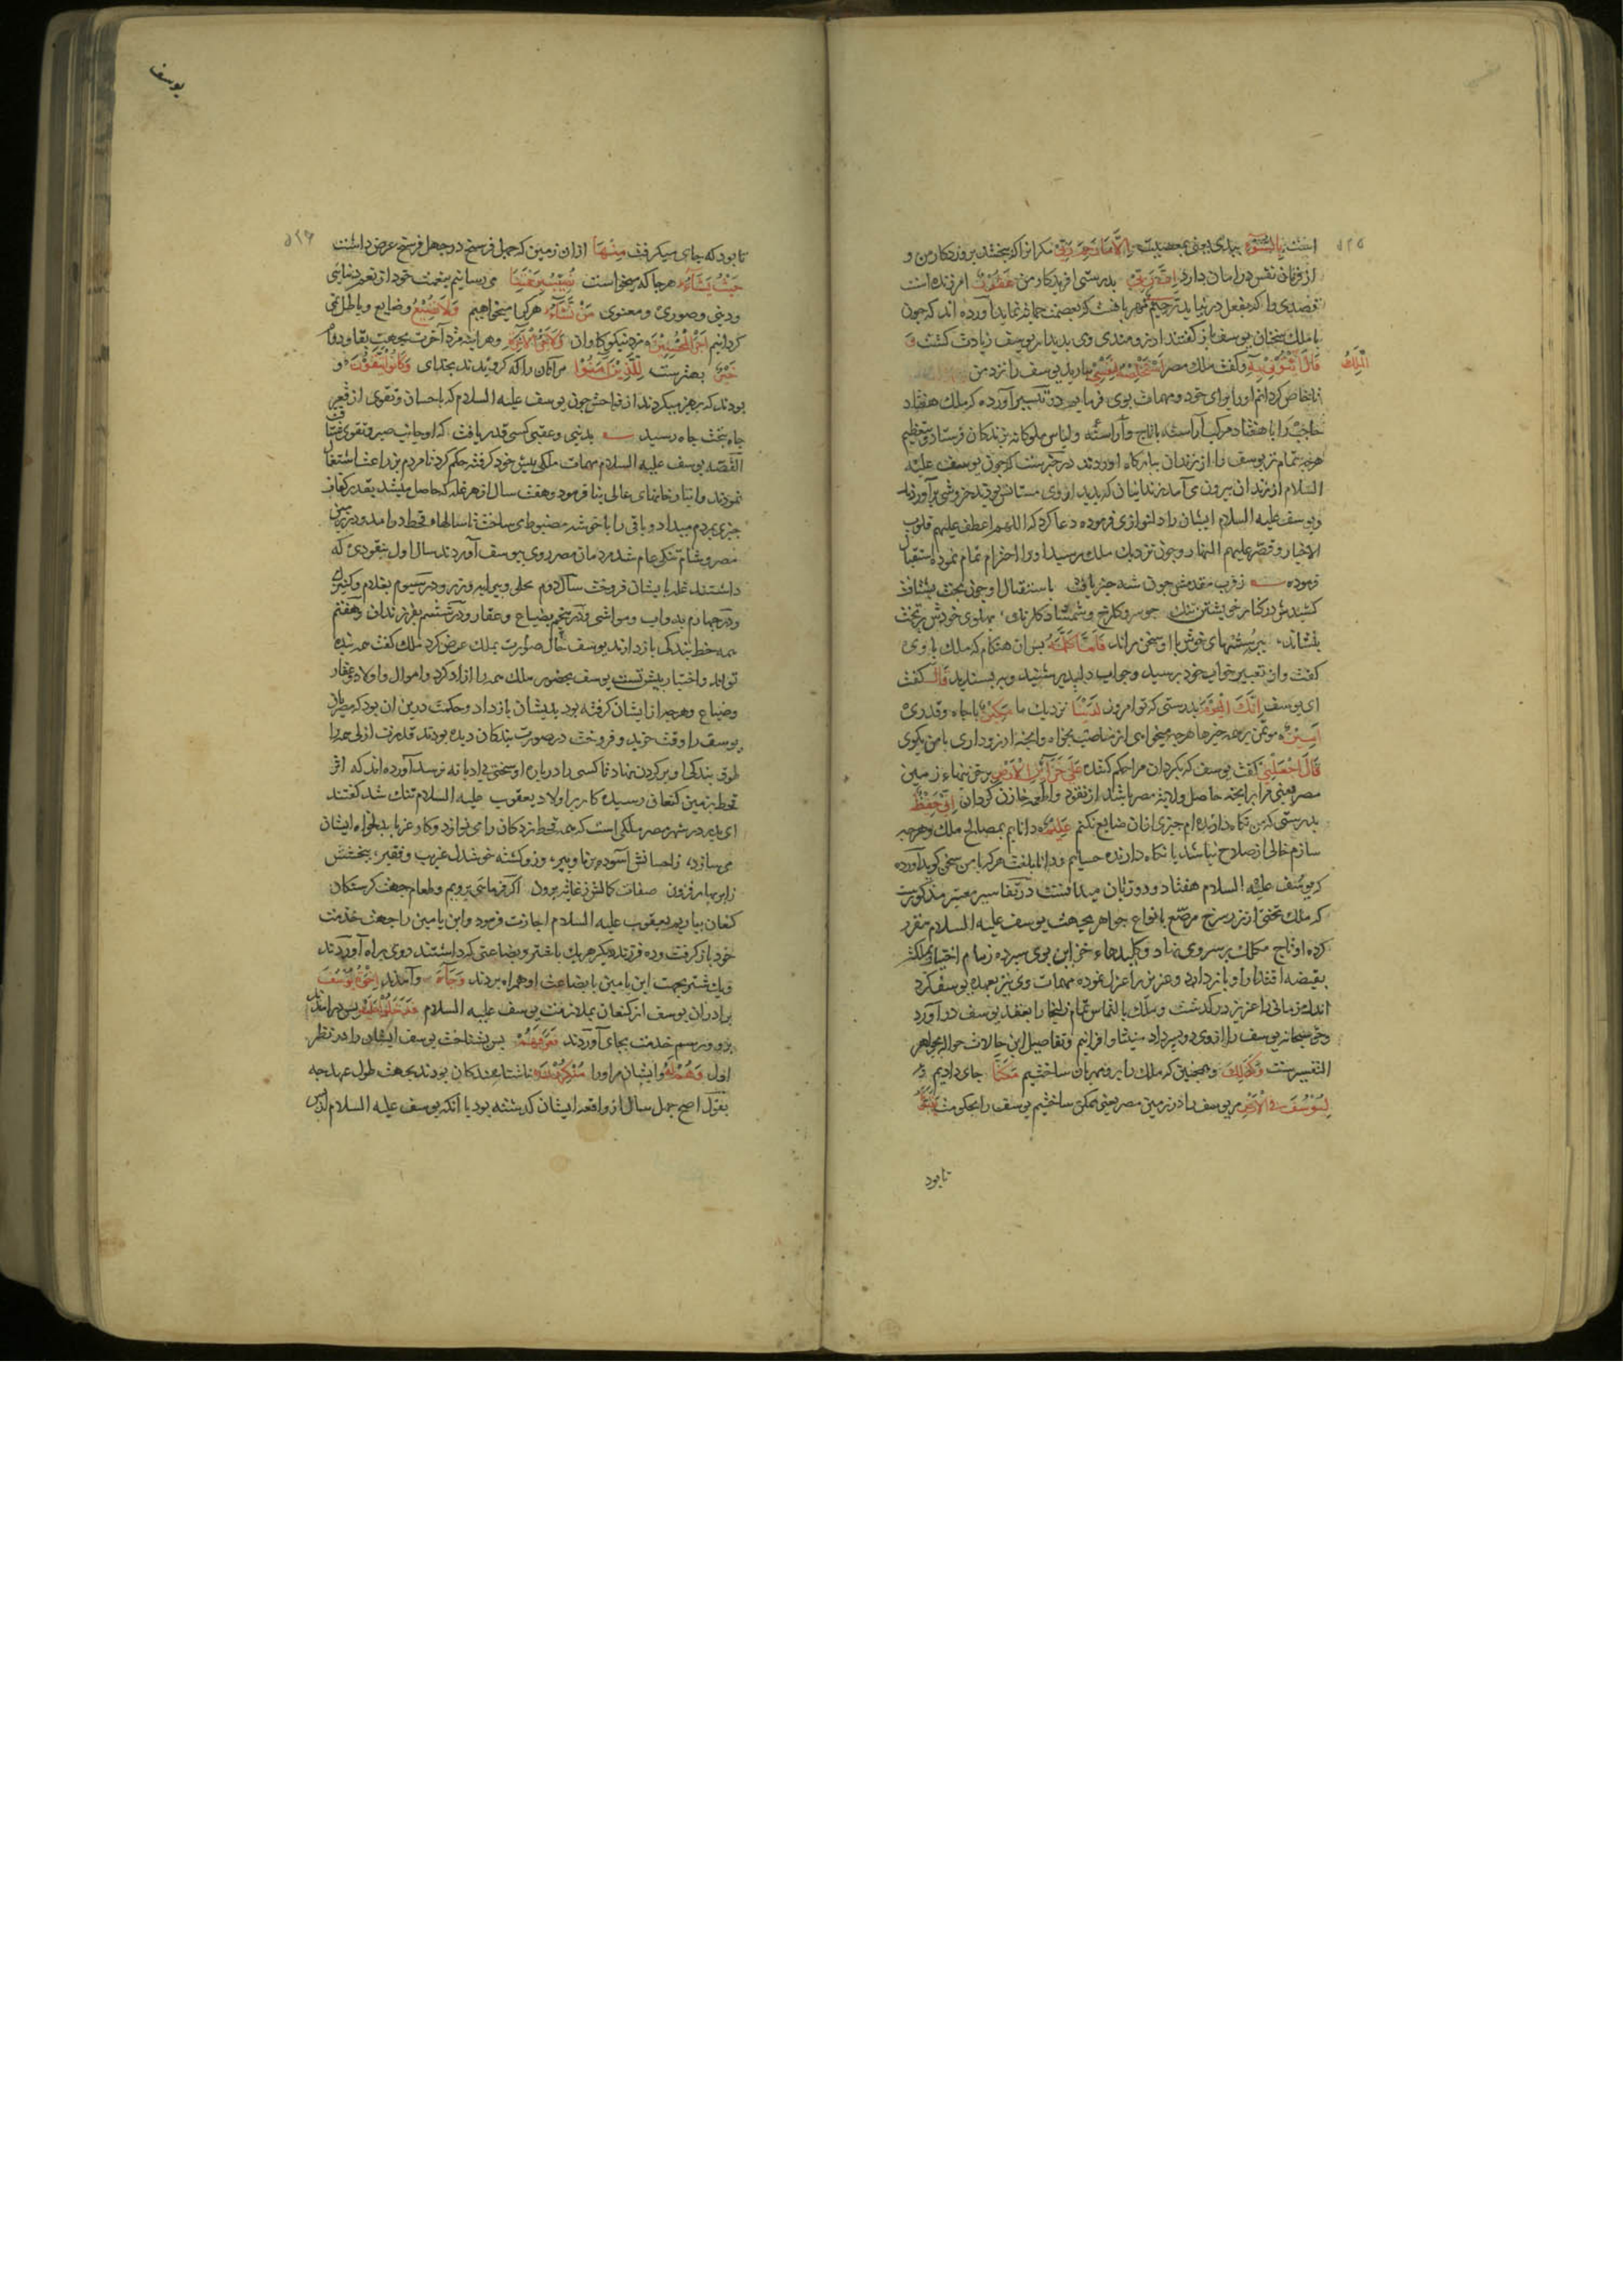 ۵۲۵
است بالسوء ببدی یعنی بمعصیت الا ما رحم ربی مکر انرا که ببخشد پروردکار من و
از فرمان نفس در امان دارد ان ربی بدرستی افریدکار من غفور امرزنده است
قصدی را که بفعل در نیاید رحیم مهربانست که بعصمت حمایت نماید آورده اند که چون
با ملک سخنان یوسف باز کفتند ارزومندی وی بدیدار یوسف زیادت کشت و
قال الملک ائتونی به وکفت ملک مصر استخلصه لنفسی بیارید یوسف را نزد من
تا خاص کردانم اورا برای خود و مهمات بوی فرمایم در تیسیر آورده که ملک هفتاد
حاجب را با هفتاد مرکب آراسته با تاج وآراسته ولباس ملوکانه بزندکان فرستاد و بتعظیم
هرچه تمام تر یوسف را از زندان ببارکاه اوردند در خبرست که چون یوسف علیه
السلام از زندان بیرون می آمد زندانیان که بدیدار وی مستانس بودند خروش برآوردند
ویوسف علیه السلام ایشان را دلنوازی فرموده دعا کرد که اللهم اعطف علیهم قلوب
الاخیار و چون نزدیک ملک رسید اورا احترام تمام نموده استقبال
فرموده زقرب مقدمش چون شه خبر یافت باستقبال او چون بخت بشتافت
کشیدش در کنار خویشتن تنک چو سرو کلرخ و شمشاد کلرنک بپهلوی خودش بر تخت
بنشاند بپرسشهای خوش با او سخن راند فلما کلمه پس ان هنکام که ملک با وی
کفت وازو تعبیر خواب خود پرسید وجواب دلپذیر شنید وبپسندید قال کفت
ای یوسف انک الیوم بدرستی که تو امروز لدینا نزدیک ما مکین با جاه وقدری
امین مؤتمن بر همه چیزها هرچه میخواهی از مناصب بخواه وانچه ارزو داری با من بکوی
قال اجعلنی کفت یوسف که بکردان مرا حکم کننده علی خزائن الارض بر خزینهاء زمین
مصر یعنی مرا بر انچه حاصل ولایت مصر باشد از نقود واطعمه خازن کردان انی حفیظ
بدرستی که من نکاه دارنده ام چیزی ازان ضایع نکنم علیم دانایم بمصالح ملک وهرچه
سازم خالی از صلاح نباشد یا نکاه دارنده حسابم ودانا بلغت هرکه با من سخن کوید آورده
که یوسف علیه السلام هفتاد ودو زبان میدانست در تفاسیر معتبر مذکورست
که ملک تختی از زر سرخ مرصع بانواع جواهر بجهت یوسف علیه السلام مقرر
کرده وتاج مکلل بر سر وی نهاد وکلیدهاء خزاین بوی سپرده زمام اختیار مملکت
بقبضه اقتدار او باز داد وعزیز را عزل نموده مهمات وی نیز بعهده یوسف کرد
اندک زمانی را عزیز درکذشت وملک بالتماس تمام زلیخا را بعقد یوسف در آورد
وحق سبحانه یوسف را ازوی دو پسر داد میشا وافرائیم وتفاصیل این حالات حواله بجواهر
التفسیرست وکذلک وهمچنین که ملک را برو مهربان ساختیم مکنا جای دادیم
لیوسف فی الارض مر یوسف را در زمین مصر یعنی ممکن ساختیم یوسف را بحکومت یتبوأ
تا بود
یوسف
۵۲۶
تا بود که جای میکرفت منها ازان زمین که چهل فرسخ در چهل فرسخ عرض داشت
حیث یشاء هرجا که میخواست نصیب برحمتنا می رسانیم بنعمت خود از نعم دنیایی
ودینی وصوری ومعنوی من نشاء هر کرا میخواهیم ولا نضیع وضایع وباطل نمی
کردانیم اجر المحسنین مزد نیکوکاران ولاجر الاخرة وهر اینه مزد آخرت بجهت بقا ودوام
خیر بهترست للذین آمنوا مر آنان را که کرویدند بخدای وکانوا یتقون و
بودند که پرهیز میکردند از فواحش چون یوسف علیه السلام که باحسان وتقوی از قعر
چاه بتخت جاه رسید بدنیی وعقبی کسی قدر یافت که او جانب صبر وتقوی شتافت
القصه یوسف علیه السلام مهمات ملکی پیش خود کرفته حکم کرد تا مردم بزراعت اشتغال
نمودند وانبار خانهای عالی بنا فرمود وهفت سال از هر غله که حاصل میشد بقدر کفاف
چیزی بمردم میداد وباقی را با خوشه مضبوط می ساخت تا سالهاء قحط درامد ودر زمین
مصر وشام تنکی عام شد مردمان مصر روی بیوسف آوردند سال اول بنقودی که
داشتند غله بایشان فروخت سال دوم بحلی وپیرایه وزیور ودر سیوم بغلام وکنیزک
ودر چهارم بدواب ومواشی ودر پنجم بضیاع وعقار ودر ششم بفرزندان وهفتم
همه خط بندکی باز دادند یوسف حال صورت بملک عرض کرد ملک کفت همه بنده
تواند واختیار پیش تست یوسف بحضور ملک همه را ازاد کرد واموال واولاد وعقار
وضیاع وهرچه از ایشان کرفته بود بدیشان باز داد وحکمت درین ان بود که مصریان
یوسف را وقت خرید وفروخت در صورت بندکان دیده بودند قدرت ازلی همه را
طوق بندکی او بر کردن نهاد تا کسی را درباره او سخن بی ادبانه نرسد آورده اند که اثر
قحط بزمین کنعان رسیده کار بر اولاد یعقوب علیه السلام تنک شد کفتند
ای پدر در شهر مصر ملکی است که همه قحط زدکان را می نوازد وکار غربا بدلخواه ایشان
می سازد زاحسانش آسوده برنا وپیر وزو کشته خوشدل غریب وفقیر ببخشش
زابر بهاری فزون صفات کمالش زغایت برون اکر فرمایی برویم وطعام جهت کرسنکان
کنعان بیاوریم یعقوب علیه السلام اجازت فرمود وابن یامین را جهت خدمت
خود باز کرفت وده فرزند دیکر هر یک با شتر وبضاعتی که داشتند روی براه آوردند
ویک شتر بجهت ابن یامین با بضاعت او همراه بردند وجاء وآمدند اخوة یوسف
برادران یوسف از کنعان بملازمت یوسف علیه السلام فدخلوا علیه پس درامدند
برو ورسم خدمت بجای آوردند فعرفهم پس بشناخت یوسف ایشان را در نظر
اول وهم له وایشان مر اورا منکرون ناشناسندکان بودند بجهت طول عهد چه
بقول اصح چهل سال از واقعه ایشان کذشته بود یا انکه یوسف علیه السلام